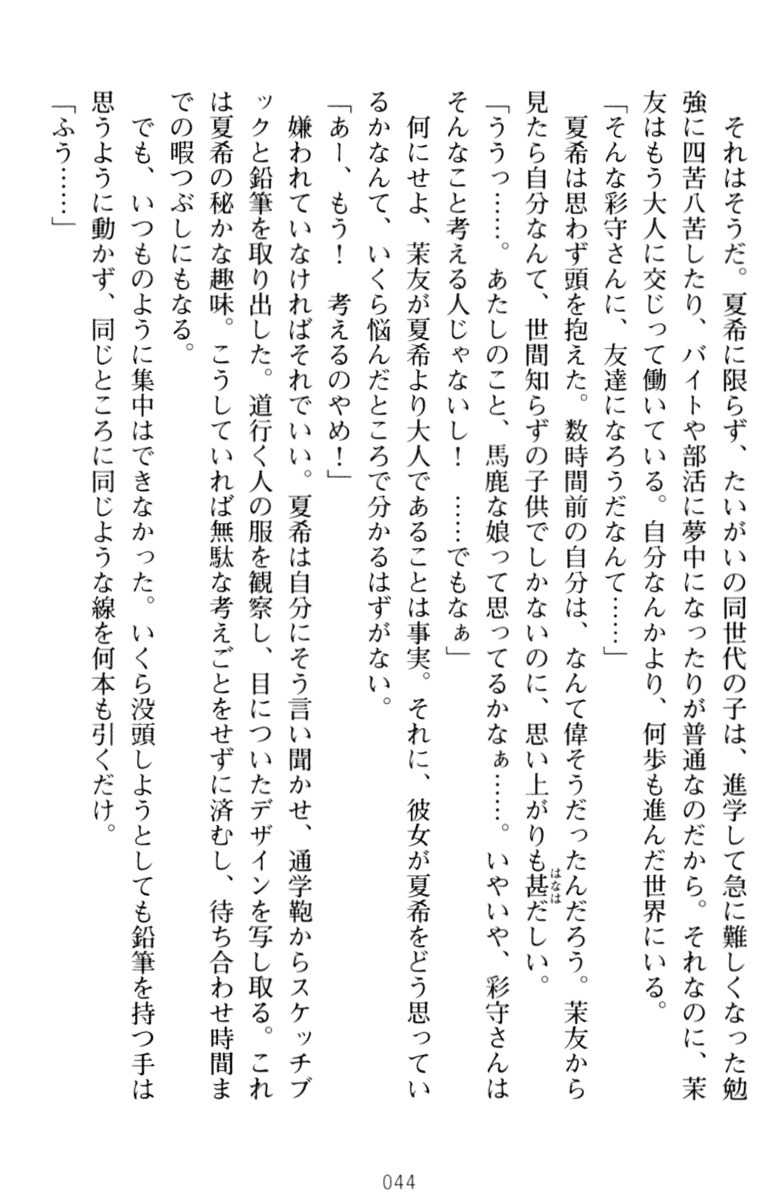 それはそうだ。夏希に限らず、たいがいの同世代の子は、進学して急に難しくなった勉
強に四苦八苦したり、バイトや部活に夢中になったりが普通なのだから。それなのに、茉
友はもう大人に交じって働いている。自分なんかより、何歩も進んだ世界にいる。
「そんな彩守さんに、友達になろうだなんて……」
夏希は思わず頭を抱えた。数時間前の自分は、なんて偉そうだったんだろう。茉友から
見たら自分なんて、世間知らずの子供でしかないのに、思い上がりも甚だしい。
はなは
「ううっ……。あたしのこと、馬鹿な娘って思ってるかなぁ……。いやいや、彩守さんは
そんなこと考える人じゃないし！　……でもなぁ」
何にせよ、茉友が夏希より大人であることは事実。それに、彼女が夏希をどう思ってい
るかなんて、いくら悩んだところで分かるはずがない。
「あー、もう！　考えるのやめ！」
嫌われていなければそれでいい。夏希は自分にそう言い聞かせ、通学鞄からスケッチブ
ックと鉛筆を取り出した。道行く人の服を観察し、目についたデザインを写し取る。これ
は夏希の秘かな趣味。こうしていれば無駄な考えごとをせずに済むし、待ち合わせ時間ま
での暇つぶしにもなる。
でも、いつものように集中はできなかった。いくら没頭しようとしても鉛筆を持つ手は
思うように動かず、同じところに同じような線を何本も引くだけ。
「ふう……」
044